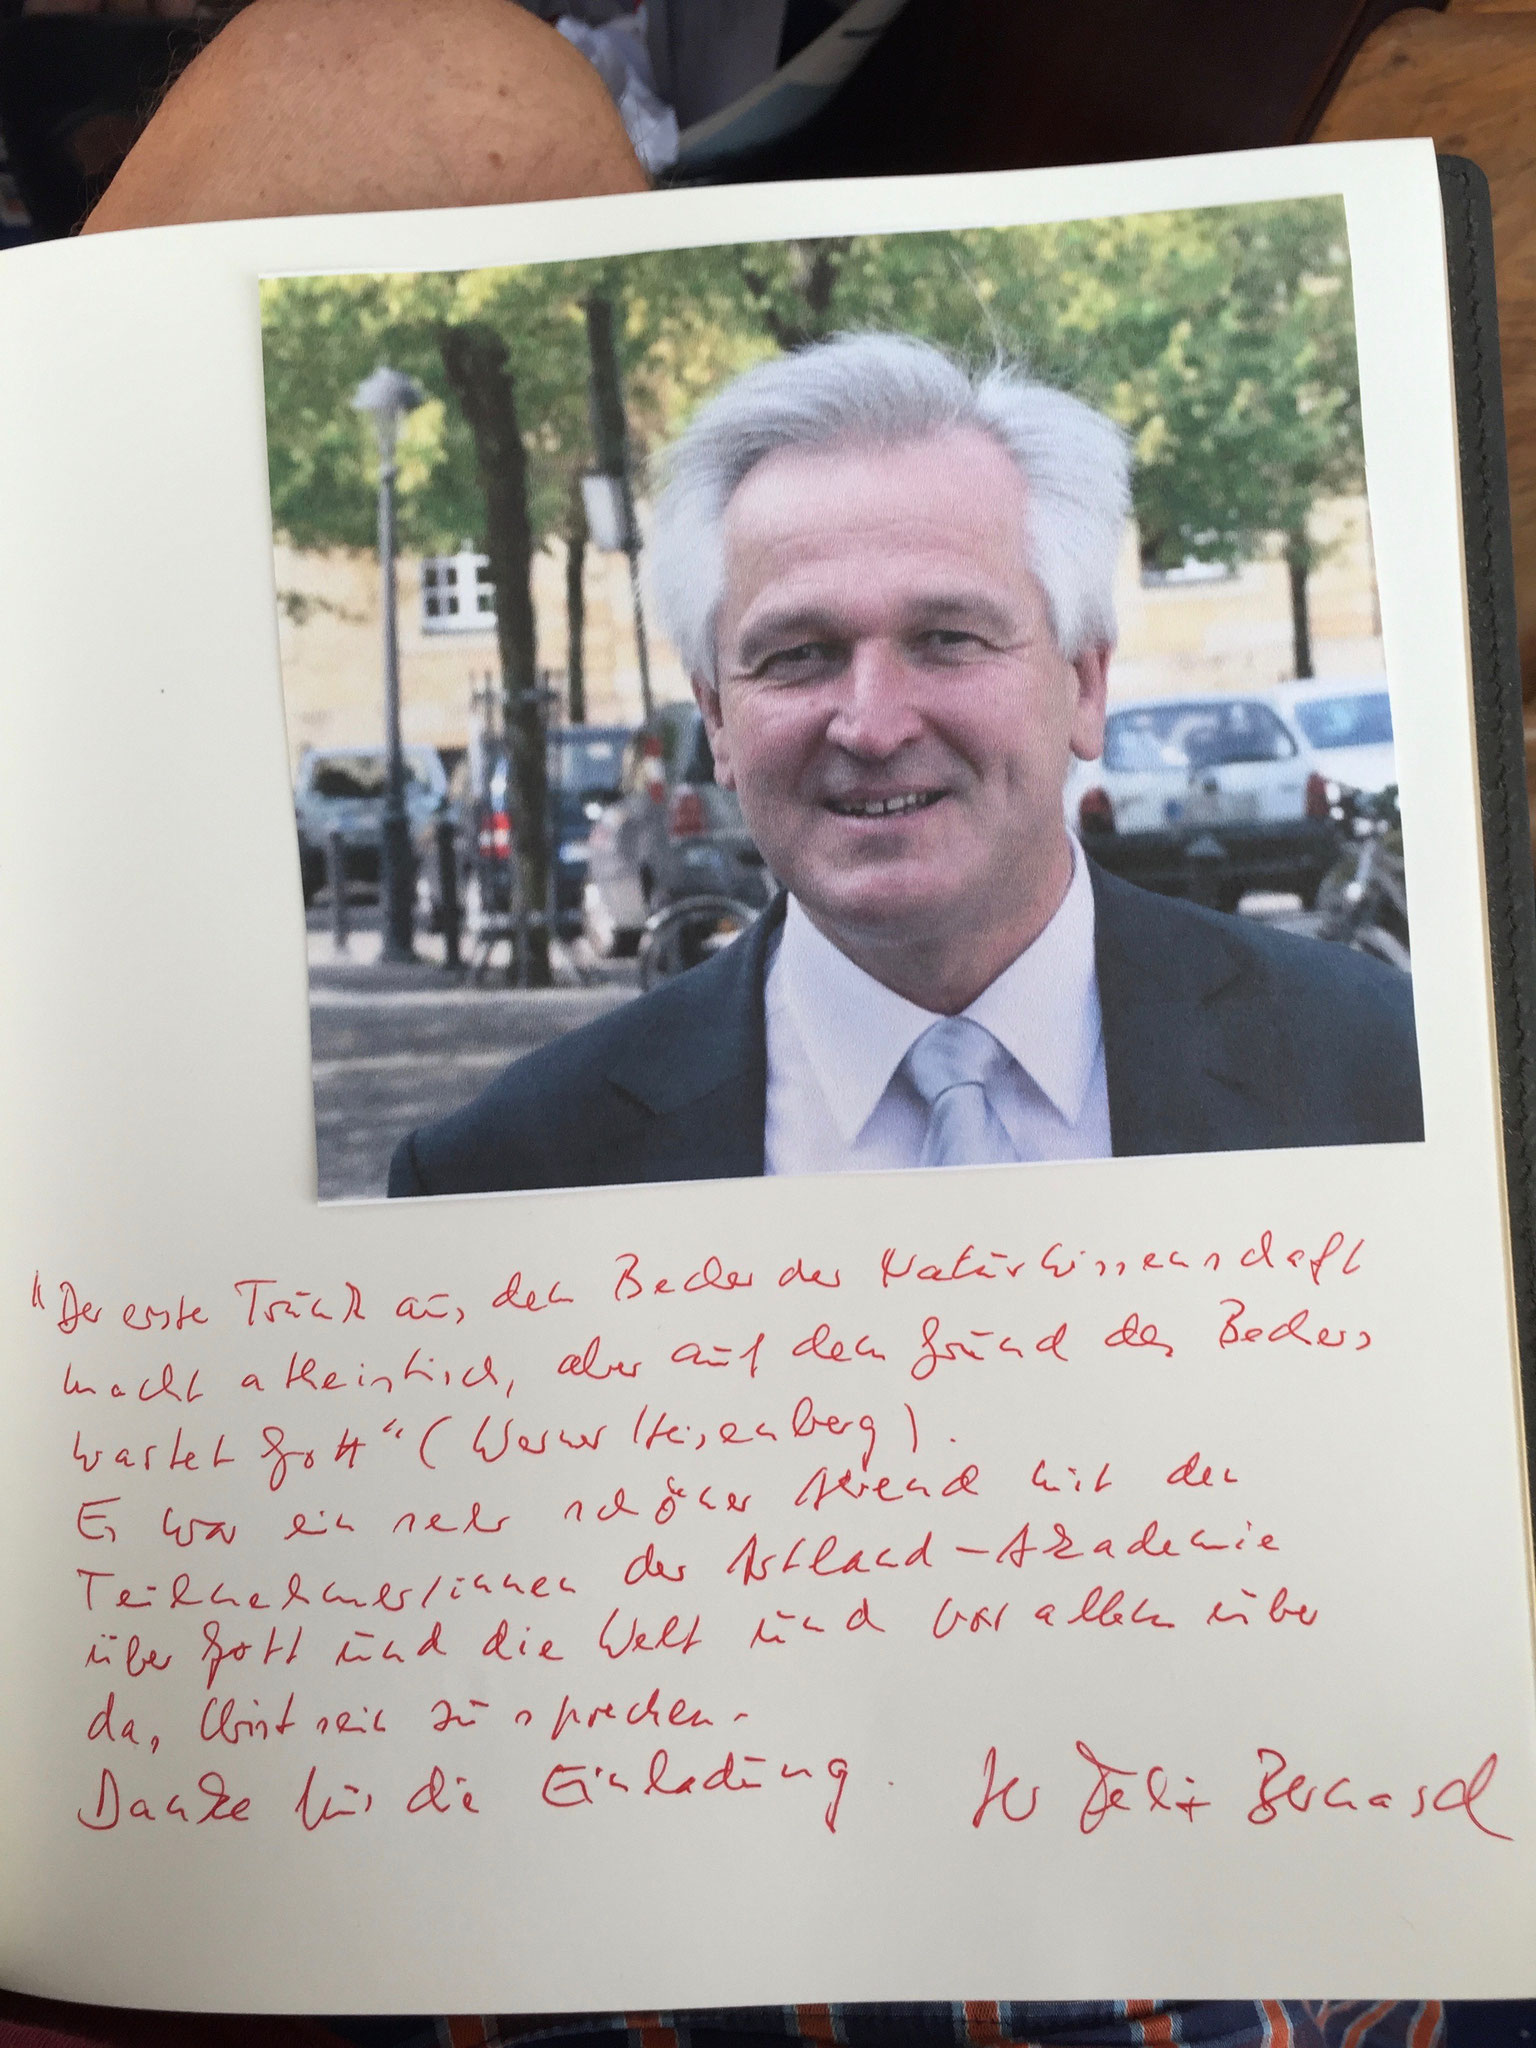 "Der erste Trunk aus dem Becher der Naturwissenschaft
macht atheistisch, aber auf dem Grund des Bechers
wartet Gott" (Werner Heisenberg).
Es war ein sehr schöner Abend mit den
Teilnehmer/innen der Artland-Akademie
über Gott und die Welt und vor allem über
das Christsein zu sprechen.
Danke für die Einladung. Ihr Felix Bernard